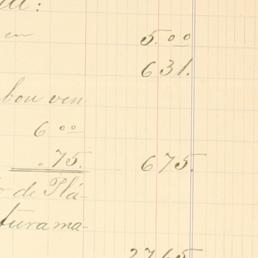 en 5.00
631.
bou ven
6 00
.75. 675.
de Plá-
turama-
2765